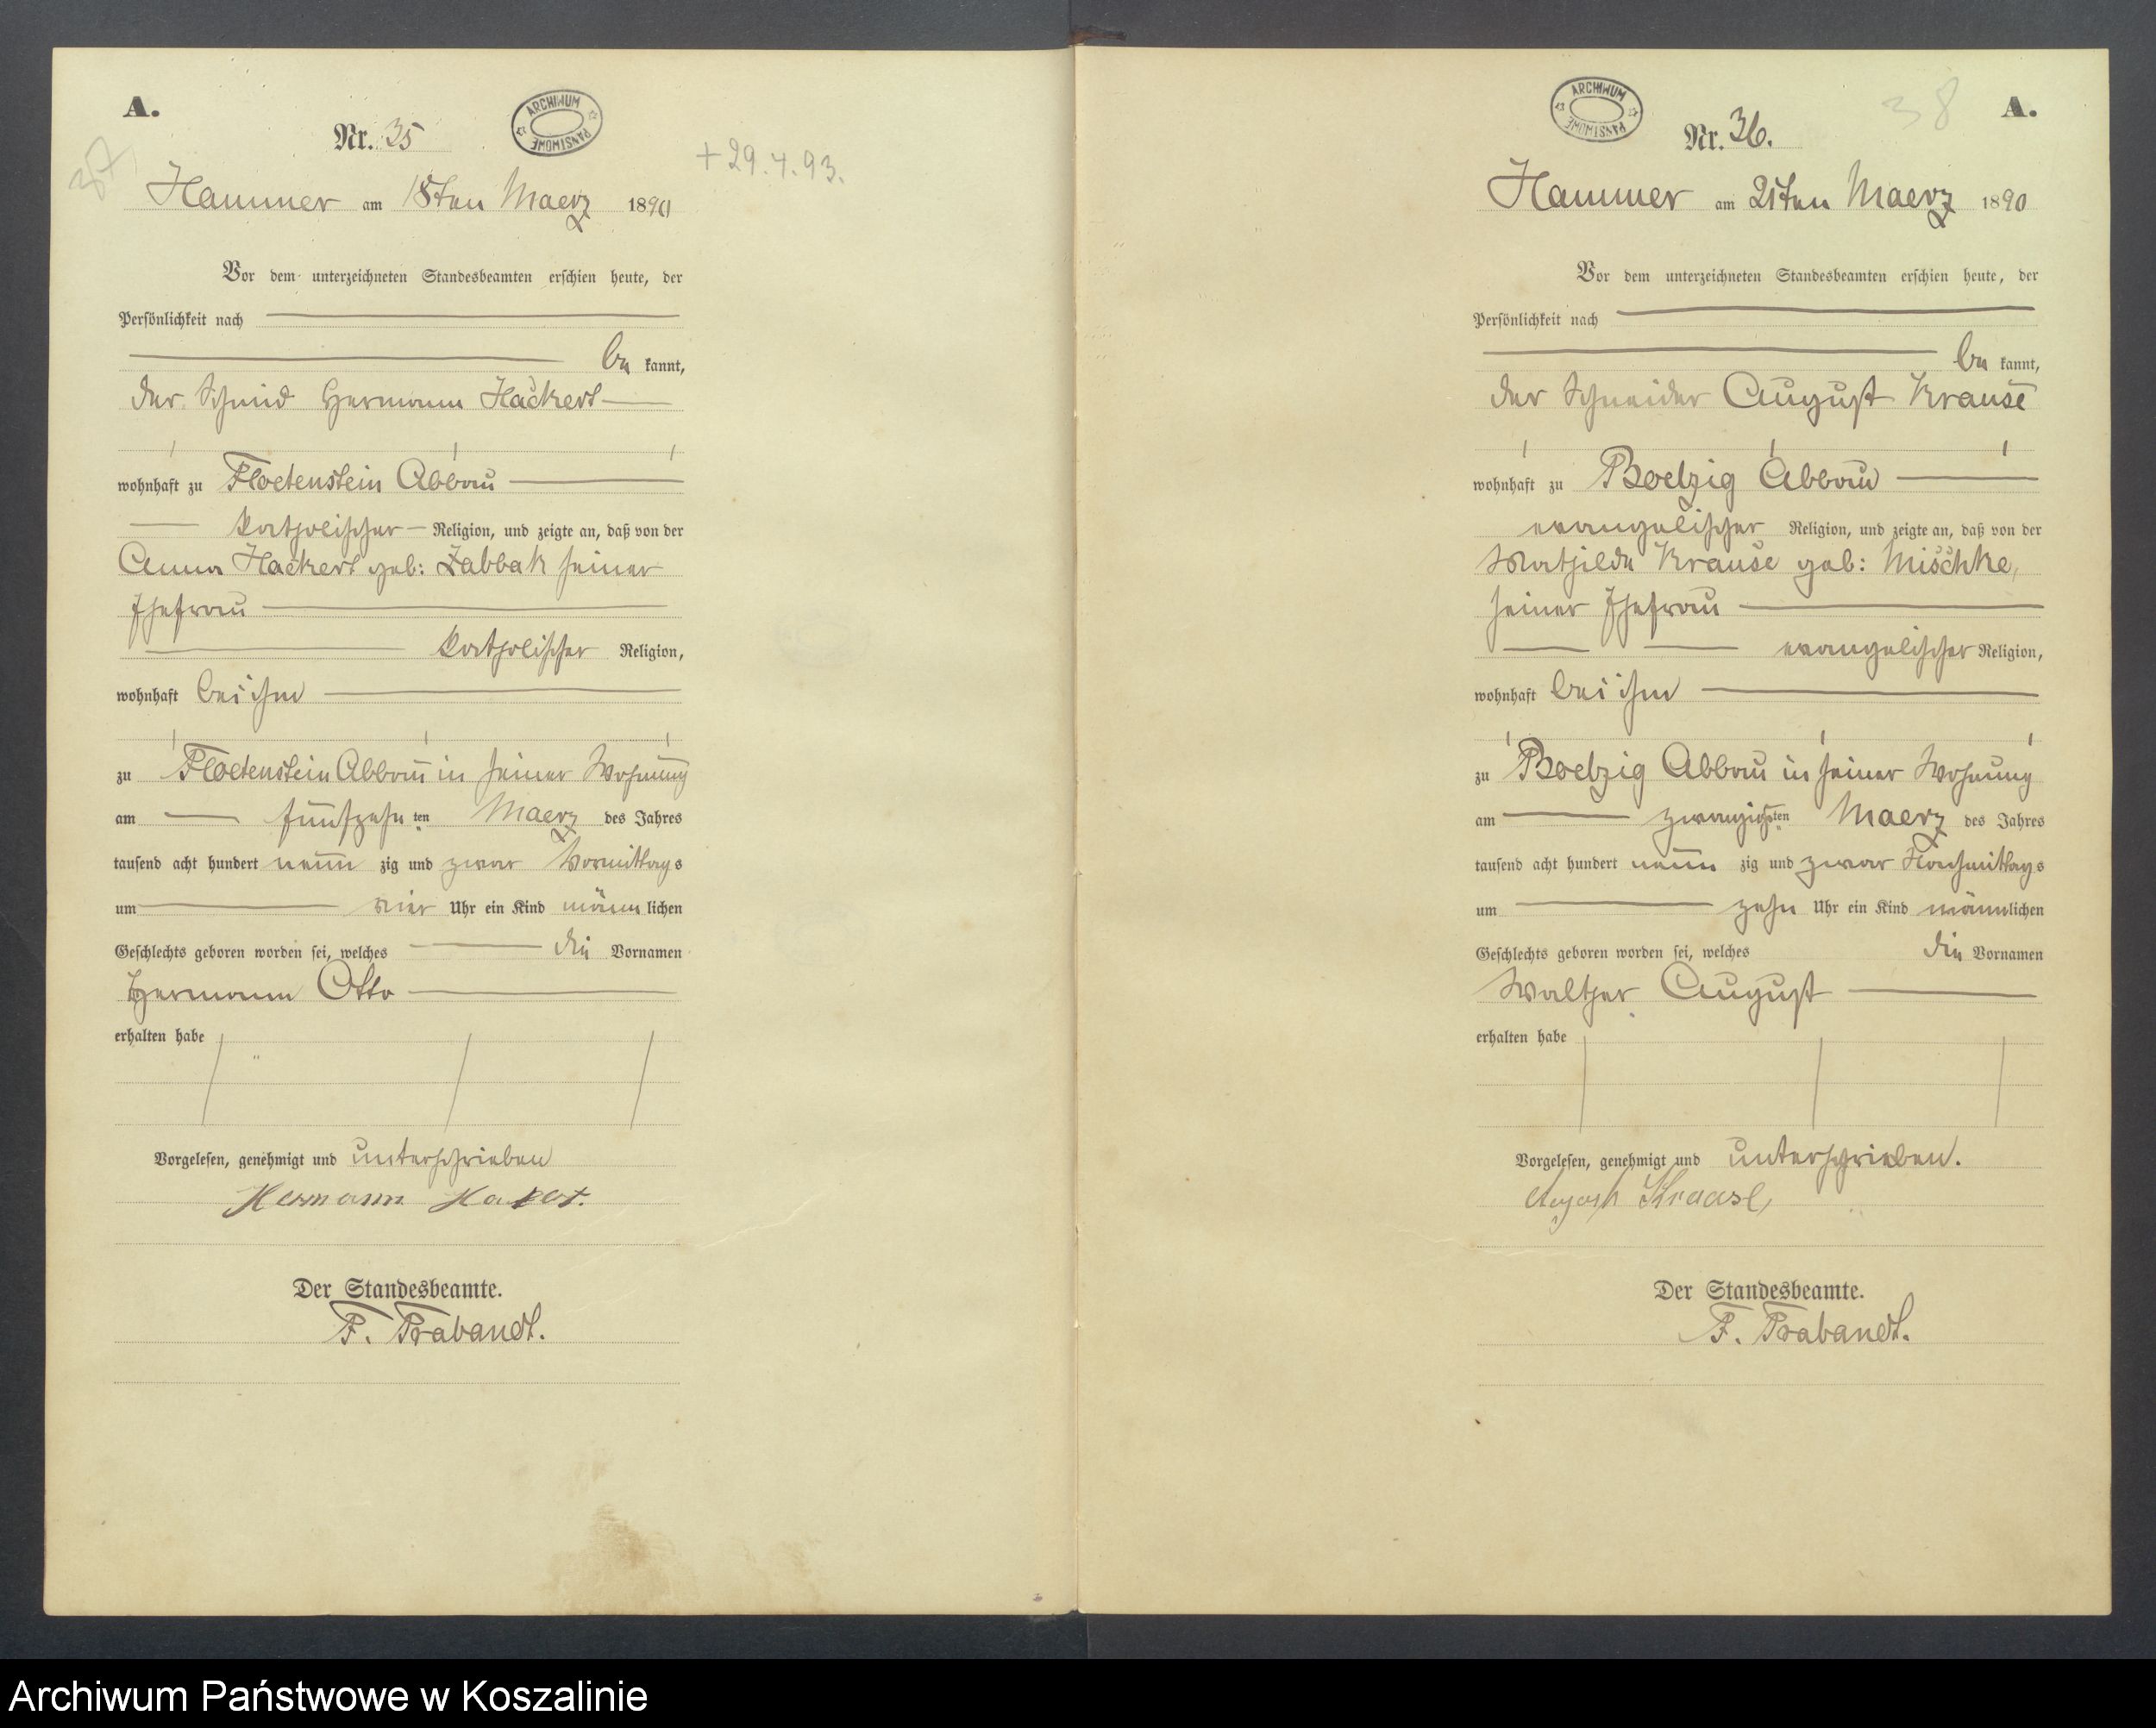 A.
37
Nr. 35
ARCHIWUM PAŃSTWOWE
+ 29.4.93.
Hammer am 18ten Maerz 1890
Vor dem unterzeichneten Standesbeamten erschien heute, der
Persönlichkeit nach
be kannt,
der Schmid Hermann Hackert
wohnhaft zu Floetenstein Abbau
katholischer Religion, und zeigte an, daß von der
Anna Hackert geb: Zabbak seiner
Ehefrau
katholischer Religion,
wohnhaft bei ihm
zu Floetenstein Abbau in seiner Wohnung
am fünfzehn ten Maerz des Jahres
tausend acht hundert neun zig und zwar Vormittags
um vier Uhr ein Kind männ lichen
Geschlechts geboren worden sei, welches die Vornamen
Hermann Otto
erhalten habe
Vorgelesen, genehmigt und unterschrieben
Hermann Hackert.
Der Standesbeamte.
F. Trabandt.
38
A.
ARCHIWUM PAŃSTWOWE
Nr. 36.
Hammer am 21ten Maerz 1890
Vor dem unterzeichneten Standesbeamten erschien heute, der
Persönlichkeit nach
be kannt,
der Schneider August Krause
wohnhaft zu Boelzig Abbau
evangelischer Religion, und zeigte an, daß von der
Mathilde Krause geb: Mischke,
seiner Ehefrau
evangelischer Religion,
wohnhaft bei ihm
zu Boelzig Abbau in seiner Wohnung
am zwanzigsten Maerz des Jahres
tausend acht hundert neun zig und zwar Nachmittags
um zehn Uhr ein Kind männlichen
Geschlechts geboren worden sei, welches die Vornamen
Walther August
erhalten habe
Vorgelesen, genehmigt und unterschrieben.
August Krause,
Der Standesbeamte.
F. Trabandt.
Archiwum Państwowe w Koszalinie